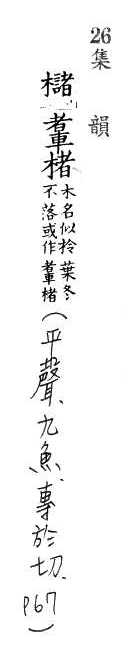 26 集韻
櫧
楮 木名似柃葉冬
不落或作 楮
(平聲、九魚、專於切、
P67)